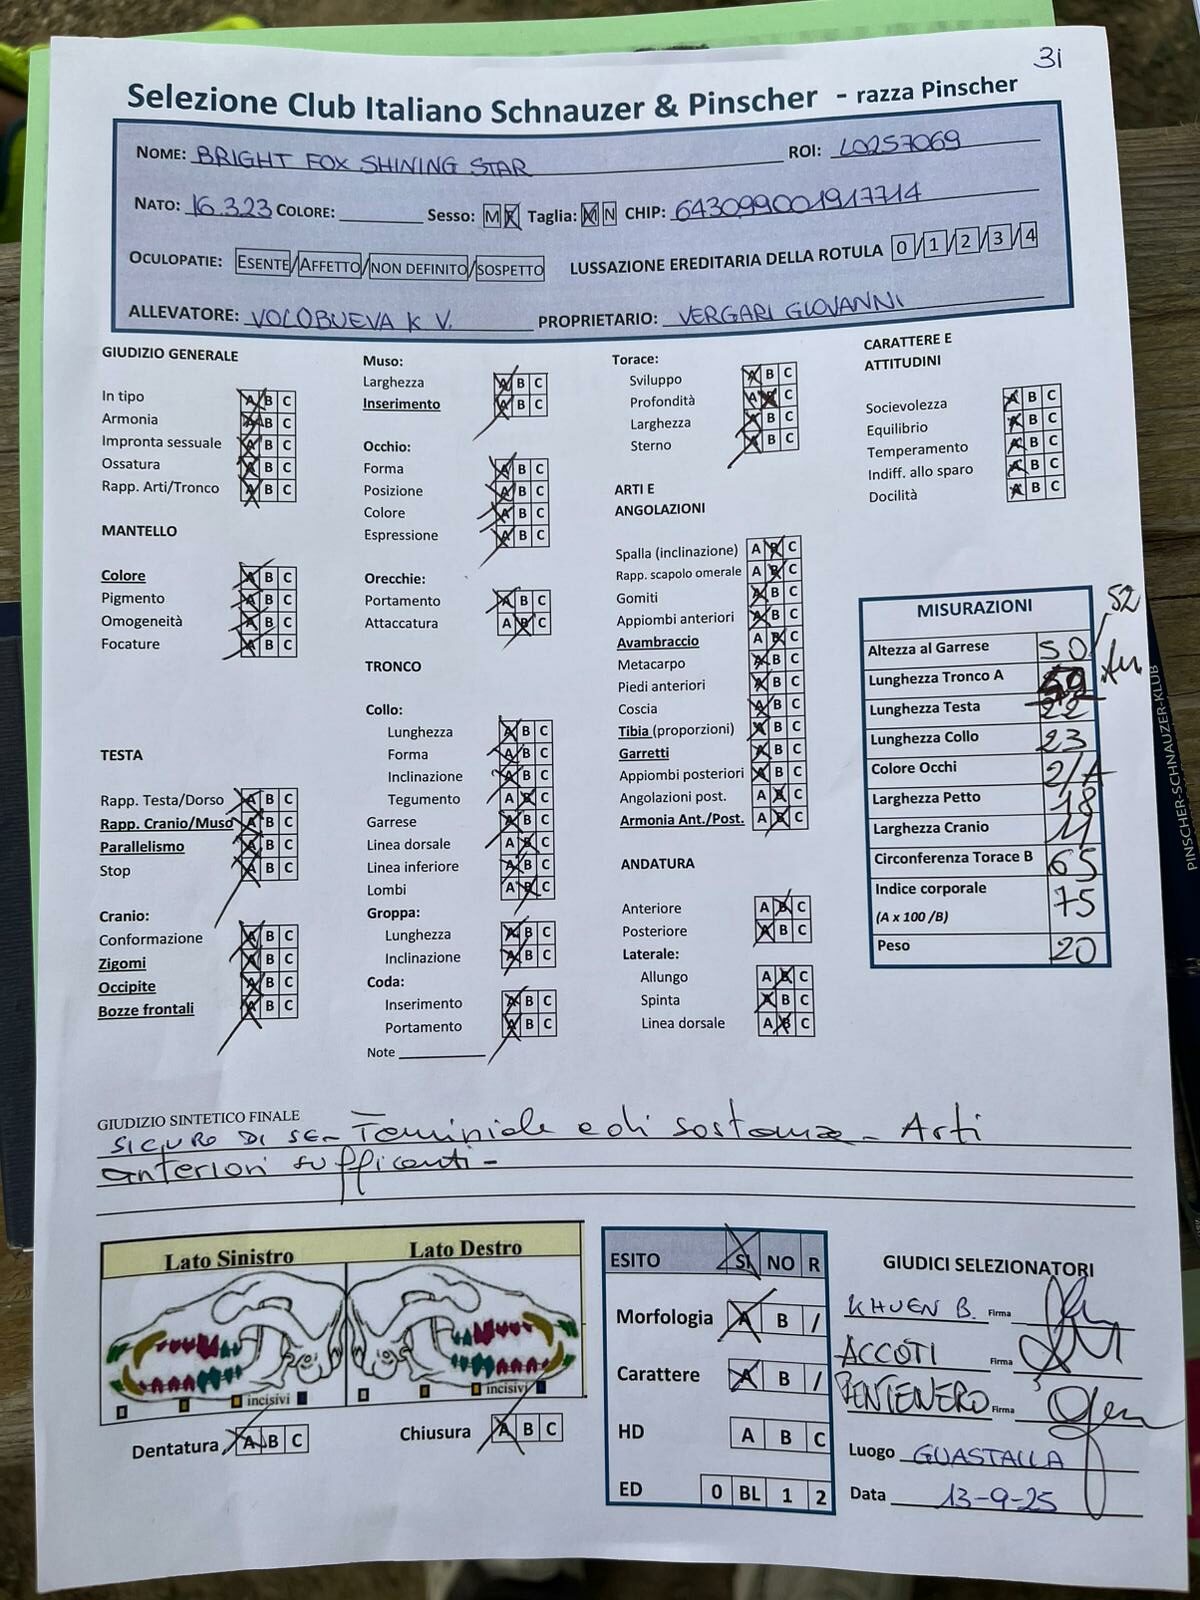 31
Selezione Club Italiano Schnauzer & Pinscher - razza Pinscher
NOME: BRIGHT FOX SHINING STAR ROI: LO257069
NATO: 16.3.23 COLORE: Sesso: M F Taglia: M N CHIP: 643099001917714
OCULOPATIE: ESENTE/AFFETTO/NON DEFINITO/SOSPETTO LUSSAZIONE EREDITARIA DELLA ROTULA 0/1/2/3/4
ALLEVATORE: VOLOBUEVA K V. PROPRIETARIO: VERGARI GIOVANNI
GIUDIZIO GENERALE
In tipo A B C
Armonia A B C
Impronta sessuale A B C
Ossatura A B C
Rapp. Arti/Tronco A B C
MANTELLO
Colore A B C
Pigmento A B C
Omogeneità A B C
Focature A B C
TESTA
Rapp. Testa/Dorso A B C
Rapp. Cranio/Muso A B C
Parallelismo A B C
Stop A B C
Cranio:
Conformazione A B C
Zigomi A B C
Occipite A B C
Bozze frontali A B C
Muso:
Larghezza A B C
Inserimento A B C
Occhio:
Forma A B C
Posizione A B C
Colore A B C
Espressione A B C
Orecchie:
Portamento A B C
Attaccatura A B C
TRONCO
Collo:
Lunghezza A B C
Forma A B C
Inclinazione A B C
Tegumento A B C
Garrese A B C
Linea dorsale A B C
Linea inferiore A B C
Lombi A B C
Groppa:
Lunghezza A B C
Inclinazione A B C
Coda:
Inserimento A B C
Portamento A B C
Note
Torace:
Sviluppo A B C
Profondità A B C
Larghezza A B C
Sterno A B C
ARTI E
ANGOLAZIONI
Spalla (inclinazione) A B C
Rapp. scapolo omerale A B C
Gomiti A B C
Appiombi anteriori A B C
Avambraccio A B C
Metacarpo A B C
Piedi anteriori A B C
Coscia A B C
Tibia (proporzioni) A B C
Garretti A B C
Appiombi posteriori A B C
Angolazioni post. A B C
Armonia Ant./Post. A B C
ANDATURA
Anteriore A B C
Posteriore A B C
Laterale:
Allungo A B C
Spinta A B C
Linea dorsale A B C
CARATTERE E
ATTITUDINI
Socievolezza A B C
Equilibrio A B C
Temperamento A B C
Indiff. allo sparo A B C
Docilità A B C
MISURAZIONI
Altezza al Garrese 50
52
Lunghezza Tronco A
Lunghezza Testa 22
Lunghezza Collo 23
Colore Occhi 2/A
Larghezza Petto 18
Larghezza Cranio 11
Circonferenza Torace B 65
Indice corporale 75
(A x 100 /B)
Peso 20
PINSCHER-SCHNAUZER-KLUB
GIUDIZIO SINTETICO FINALE
SICURO DI SE - Feminile e di sostanza - Arti
anteriori sufficenti -
Lato Sinistro Lato Destro
incisivi incisivi
Dentatura A B C Chiusura A B C
ESITO SI NO R
Morfologia A B /
Carattere A B /
HD A B C
ED 0 BL 1 2
GIUDICI SELEZIONATORI
KHUEN B. Firma
ACCOTI Firma
PENTENERO Firma
Luogo GUASTALLA
Data 13-9-25